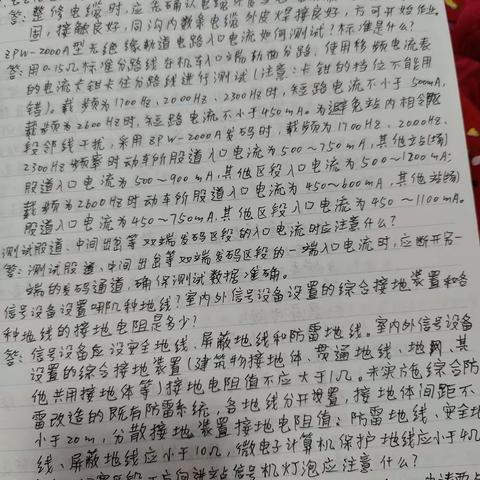 答: 整修电缆时,应先确认电缆
固,接触良好,同沟内数条电缆外皮焊接良好,方可开始作业。
ZPW-2000A型无绝缘轨道电路入口电流如何测试?标准是什么?
答: 用0.15Ω标准分路线在机车入口端轨面分路,使用移频电流表
的电流卡钳卡住分路线进行测试(注意:卡钳的档位不能用
错)。载频为1700Hz、2000Hz、2300Hz时,短路电流不小于500mA,
载频为2600Hz时,短路电流不小于450mA。为避免站内相邻
段邻线干扰,采用ZPW-2000A发码时,载频为1700Hz、2000Hz、
2300Hz频率时动车所股道入口电流为500~750mA,其他站(场)
股道入口电流为500~900mA,其他区段入口电流为500~1200mA;
载频为2600Hz时动车所股道入口电流为450~600mA,其他站(场)
股道入口电流为450~750mA,其他区段入口电流为450~1100mA。
测试股道、中间出岔等双端发码区段的入口电流时应注意什么?
答: 测试股道、中间出岔等双端发码区段的一端入口电流时,应断开另一
端的发码通道,确保测试数据准确。
信号设备设置哪几种地线?室内外信号设备设置的综合接地装置和各
种地线的接地电阻是多少?
答: 信号设备应设安全地线、屏蔽地线和防雷地线。室内外信号设备
设置的综合接地装置(建筑物接地体、贯通地线、地网、其
他共用接地体等)接地电阻值不应大于1Ω。未实施综合防
雷改造的既有防雷系统,各地线分开设置,接地体间距不
小于20m,分散接地装置接地电阻值:防雷地线、安全地
线、屏蔽地线应小于10Ω,微电子计算机保护地线应小于4Ω
方向进站信号机灯泡应注意什么?